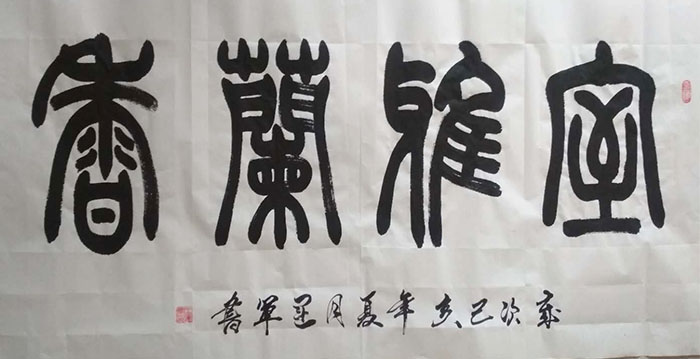 室雅蘭香
歲次己亥年夏月運軍書